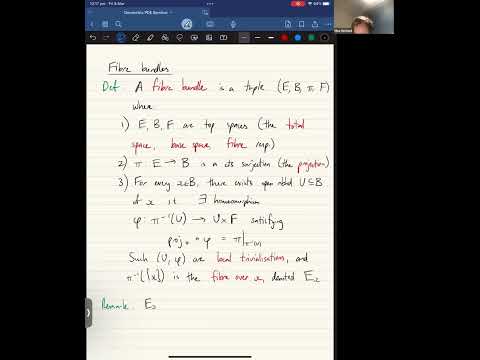 12:17 pm Fri 8 Mar
Geometric PDE Seminar
64%
Fibre bundles
Def. A fibre bundle is a triple (E, B, π F)
where
1) E, B, F are top spaces (the total
space, base space fibre resp)
2) π E → B is a cts surjection (the projection)
3) For every x∈B, there exists open nbhd U⊆B
of x s.t ∃ homeomorphism
φ: π⁻¹(U) → U×F satisfying
∘ φ = π|π⁻¹(U)
Such (U, φ) are local trivialisation, and
π⁻¹({x}) is the fibre over x, denoted Eₓ
Remark. Eₓ